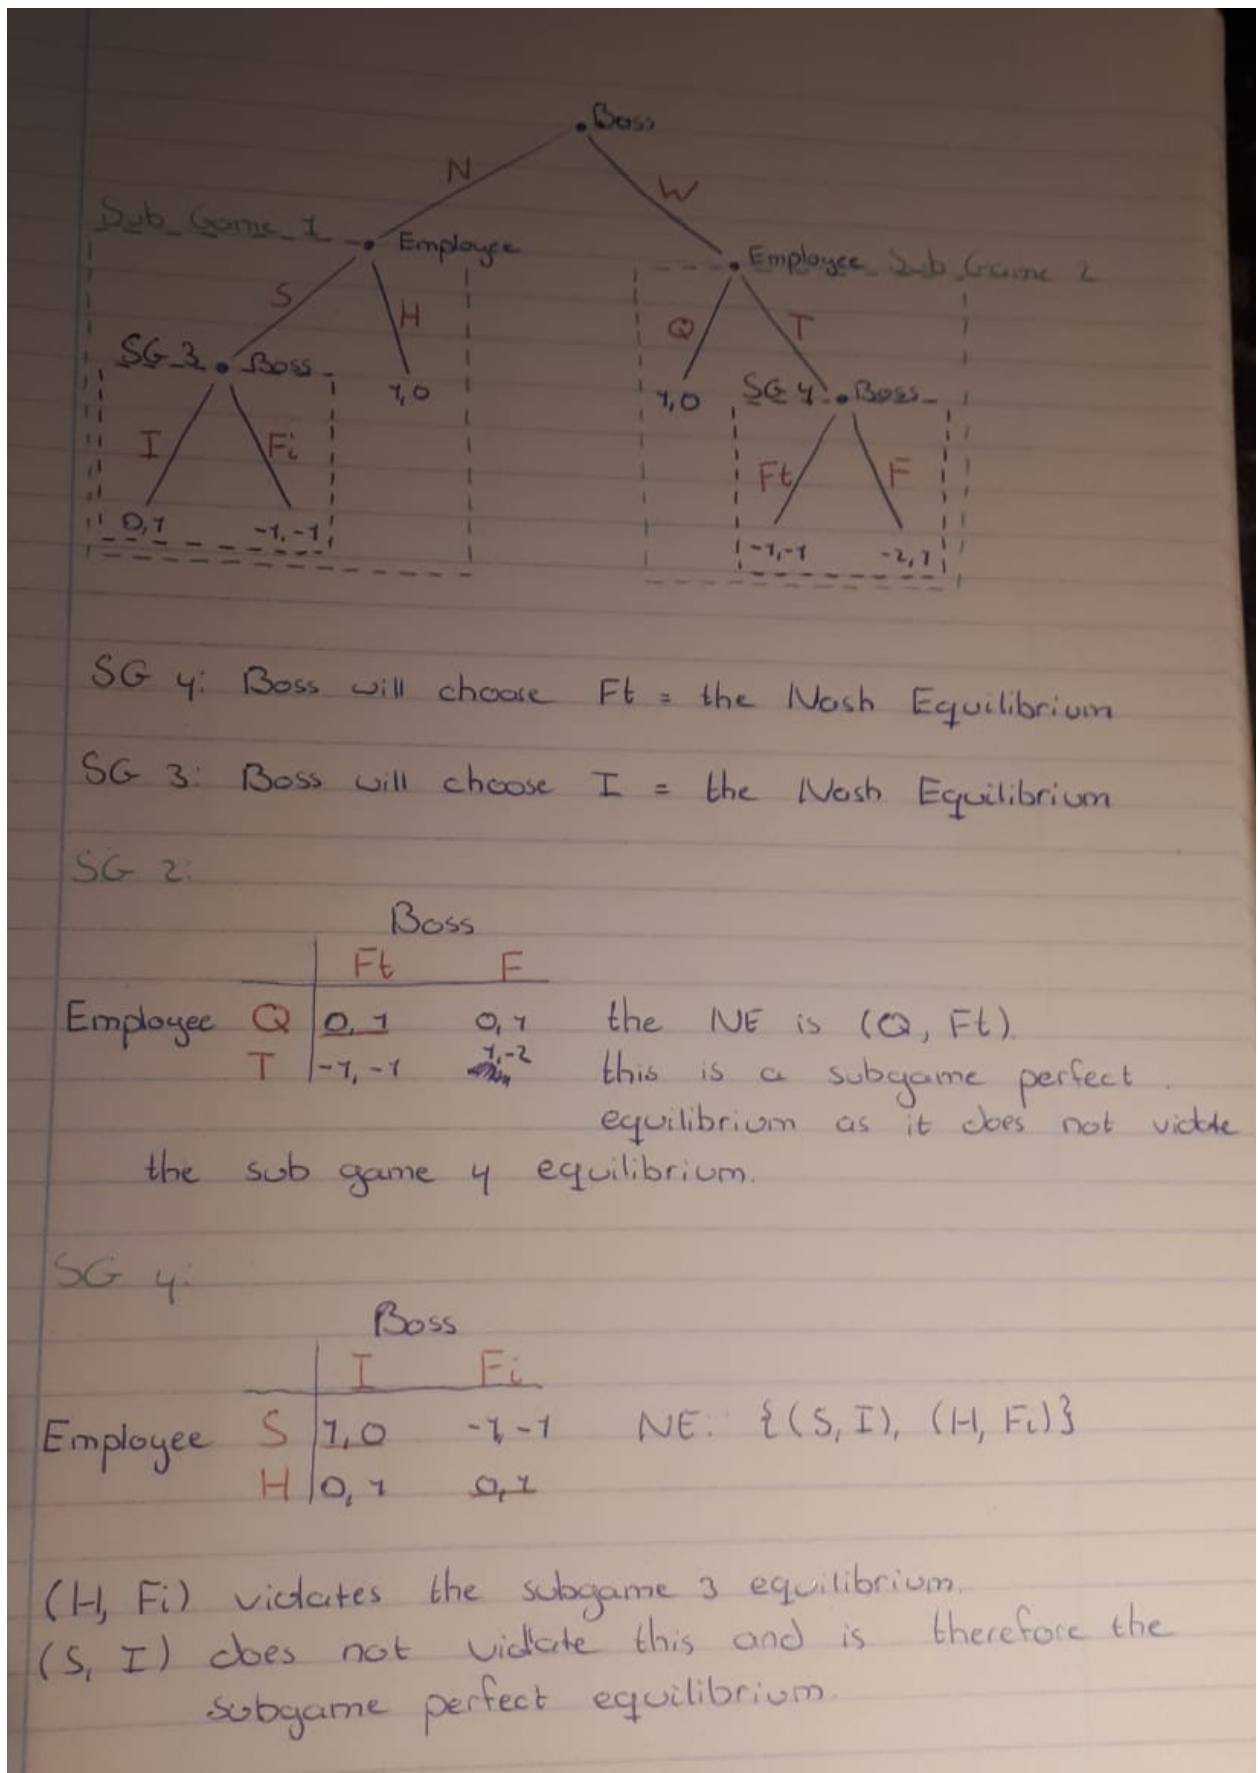 Boss
N
W
Sub Game 1
Employee
Employee Sub Game 2
S
H
Q
T
SG 3 Boss
1,0
1,0
SG 4 Boss
I
Fi
Ft
F
0,1
-1,-1
-1,-1
-2,1
SG 4: Boss will choose Ft = the Nash Equilibrium
SG 3: Boss will choose I = the Nash Equilibrium
SG 2:
Boss
Ft F
Employee Q 0,1 0,1 the NE is (Q, Ft).
T -1,-1 1,-2 this is a subgame perfect
equilibrium as it does not violate
the sub game 4 equilibrium.
SG 4:
Boss
I Fi
Employee S 1,0 -1,-1 NE: {(S, I), (H, Fi)}
H 0,1 0,1
(H, Fi) violates the subgame 3 equilibrium.
(S, I) does not violate this and is therefore the
subgame perfect equilibrium.